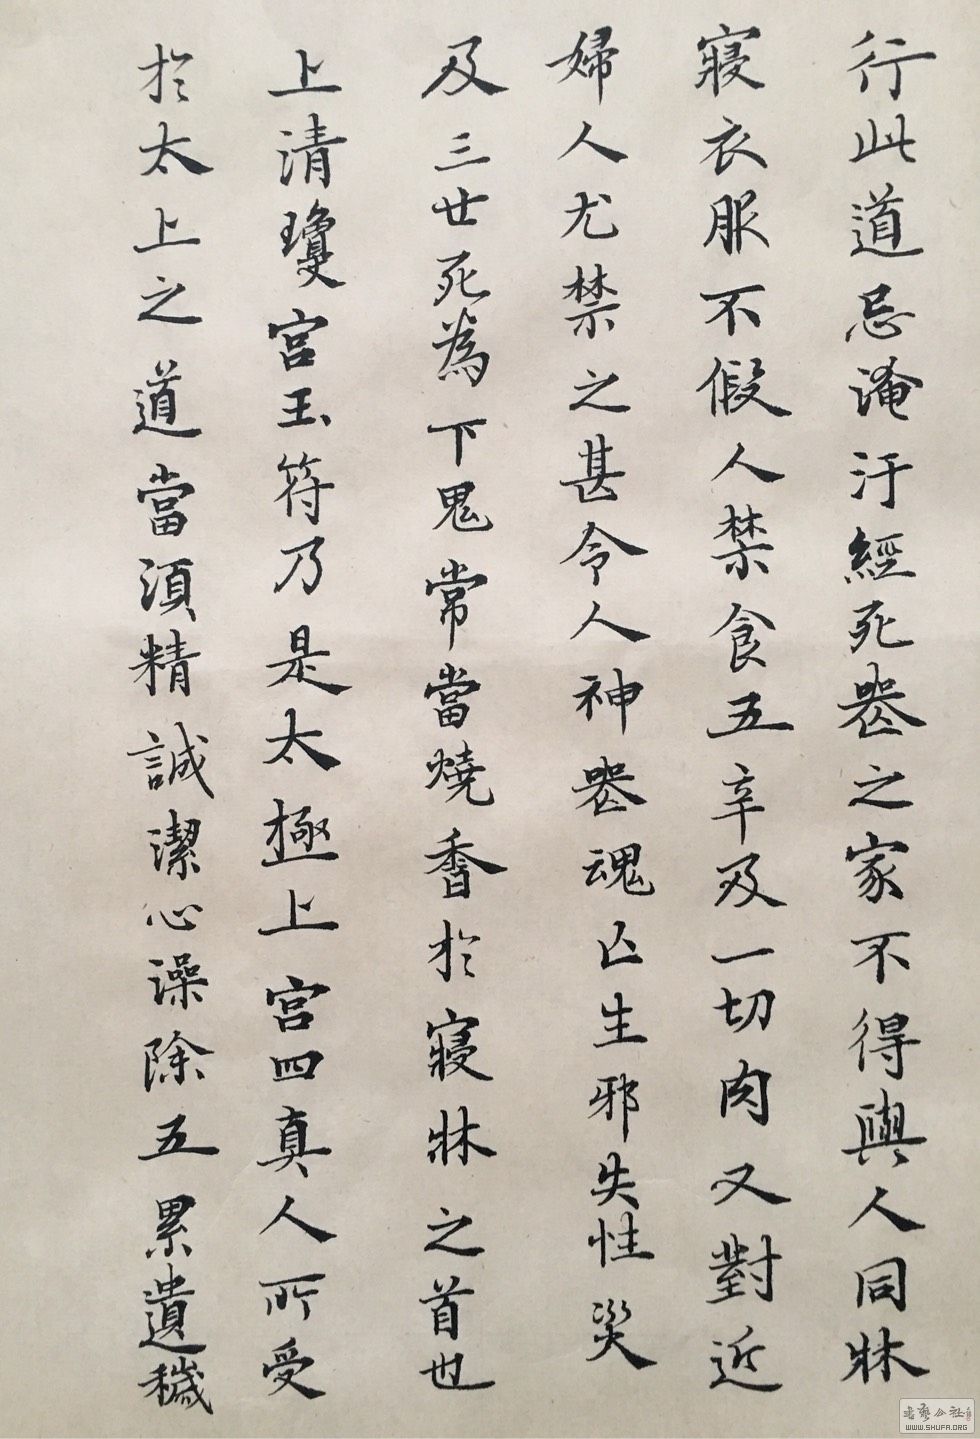 行此道忌淹汙經死喪之家不得與人同牀
寢衣服不假人禁食五辛及一切肉又對近
婦人尤禁之甚令人神喪魂亾生邪失性災
及三世死為下鬼常當燒香於寢牀之首也
上清瓊宮玉符乃是太極上宮四真人所受
於太上之道當須精誠潔心澡除五累遺穢
WWW.SHUFA.ORG